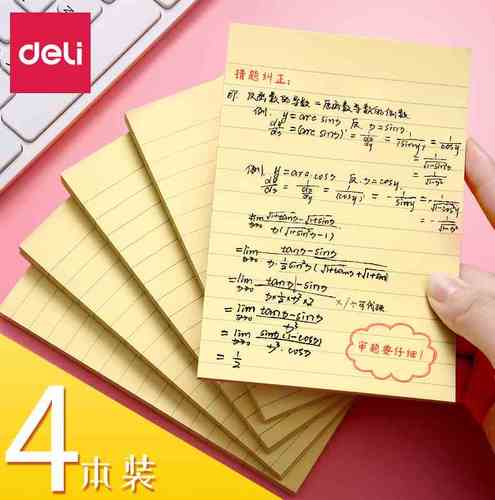 deli
错题纠正:
即 反函数的导数 = 原函数导数的倒数
例. y = arc sinx 反 x = siny
dy/dx = (arc sinx)' = 1/(dx/dy) = 1/(siny)' = 1/cosy
= 1/√(1-sin²y)
= 1/√(1-x²)
例1. y = arc.cosx 反. x = cosy.
dy/dx = 1/(dx/dy) = 1/(cosy)' = -1/siny = -1/√(1-cos²y)
= -1/√(1-x²)
lim x→0 (√(1+tanx)-√(1+sinx))/(x(√(1+sin²x)-1))
= lim x→0 (tanx-sinx)/(x·½sin²x(√(1+tanx)+√(1+sinx)))
= lim x→0 (tanx-sinx)/(x·½·x²·2)
个可代换
= lim x→0 (tanx-sinx)/x³
= lim x→0 sinx(1-cosx)/(x³·cosx)
= 1/2
审题要仔细!
4本装